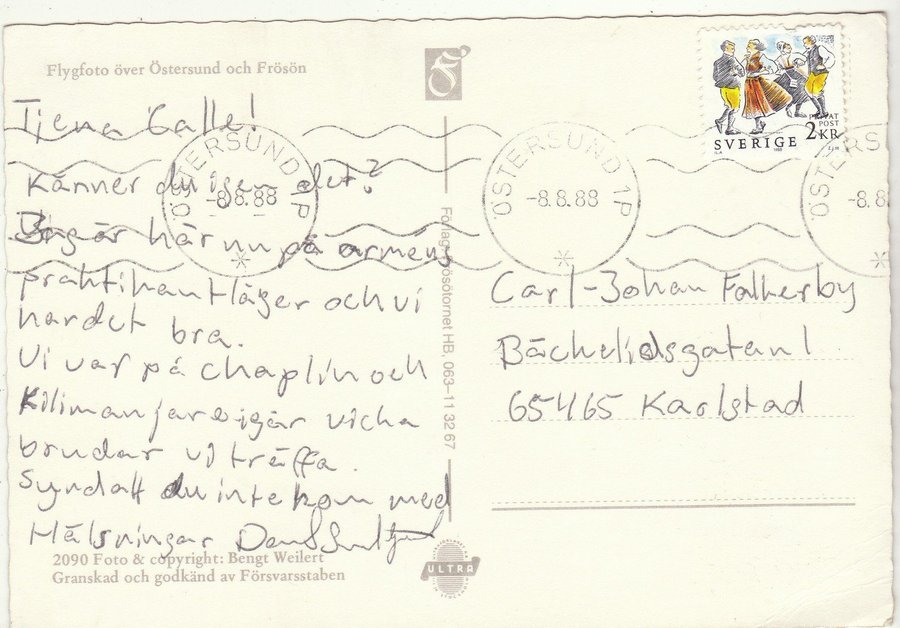 Flygfoto över Östersund och Frösön
Tjena Calle!
Känner du igen det?
Jag är här nu på armens
praktikantläger och vi
hardet bra.
Vi var på chaplin och
Kilimanjaro igår vicka
brudar vi träffa.
Synd att du inte kom med
Hälsningar
2090 Foto & copyright: Bengt Weilert
Granskad och godkänd av Försvarsstaben
Förlag Frösötornet HB, 063-11 32 67
ULTRA
SVERIGE 2 KR
PRIVAT
POST
ÖSTERSUND 1P
-8.8.88
ÖSTERSUND 1P
-8.8.88
ÖSTERS
-8.8
Carl-Johan Falkerby
Bäckelidsgatan 1
65465 Karlstad